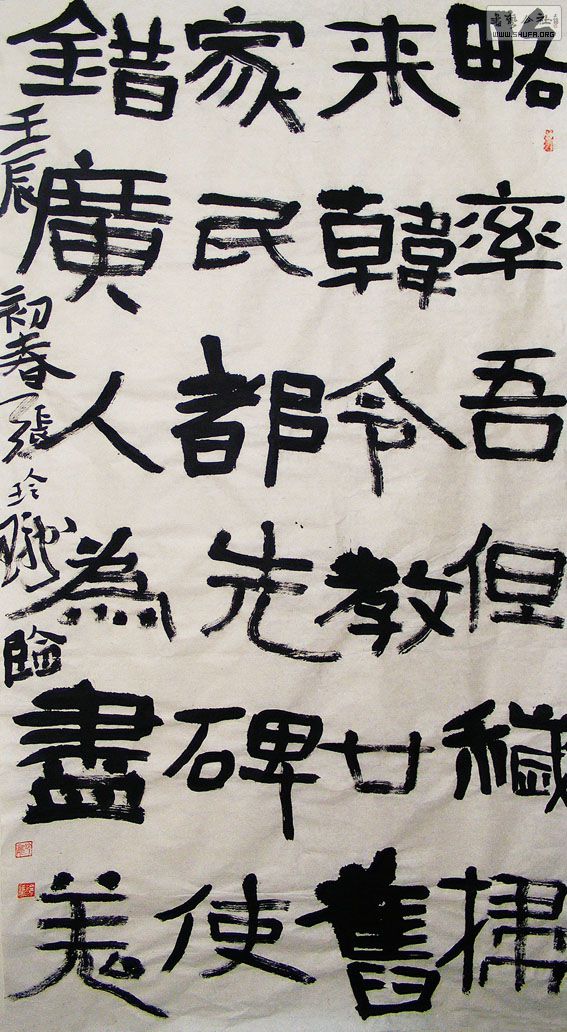 略率吾但穢掃
来韓令教廿舊
家民都先碑使
錯廣人為盡
壬辰初春張玲臨
WWW.SHUFA.ORG